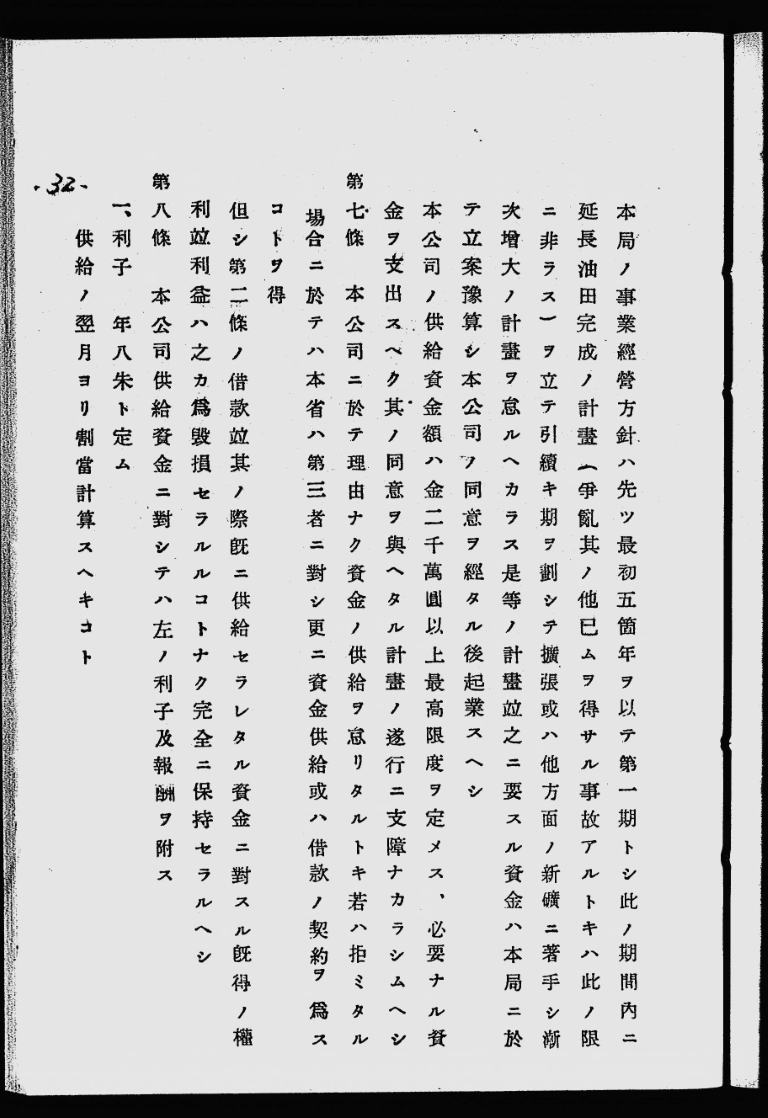 本局ノ事業經營方針ハ先ツ最初五箇年ヲ以テ第一期トシ此ノ期間內ニ
延長油田完成ノ計畫(爭亂其ノ他已ムヲ得サル事故アルトキハ此ノ限
ニ非ラス)ヲ立テ引續キ期ヲ劃シテ擴張或ハ他方面ノ新礦ニ著手シ漸
次增大ノ計畫ヲ怠ルヘカラス是等ノ計畫竝之ニ要スル資金ハ本局ニ於
テ立案豫算シ本公司ノ同意ヲ經タル後起業スヘシ
本公司ノ供給資金額ハ金二千萬圓以上最高限度ヲ定メス、必要ナル資
金ヲ支出スヘク其ノ同意ヲ與ヘタル計畫ノ遂行ニ支障ナカラシムヘシ
第七條 本公司ニ於テ理由ナク資金ノ供給ヲ怠リタルトキ若ハ拒ミタル
場合ニ於テハ本省ハ第三者ニ對シ更ニ資金供給或ハ借款ノ契約ヲ爲ス
コトヲ得
但シ第二條ノ借款竝其ノ際旣ニ供給セラレタル資金ニ對スル旣得ノ權
利竝利益ハ之カ爲毀損セラルルコトナク完全ニ保持セラルヘシ
第八條 本公司供給資金ニ對シテハ左ノ利子及報酬ヲ附ス
一、利子 年八朱ト定ム
供給ノ翌月ヨリ割當計算スヘキコト
-32-